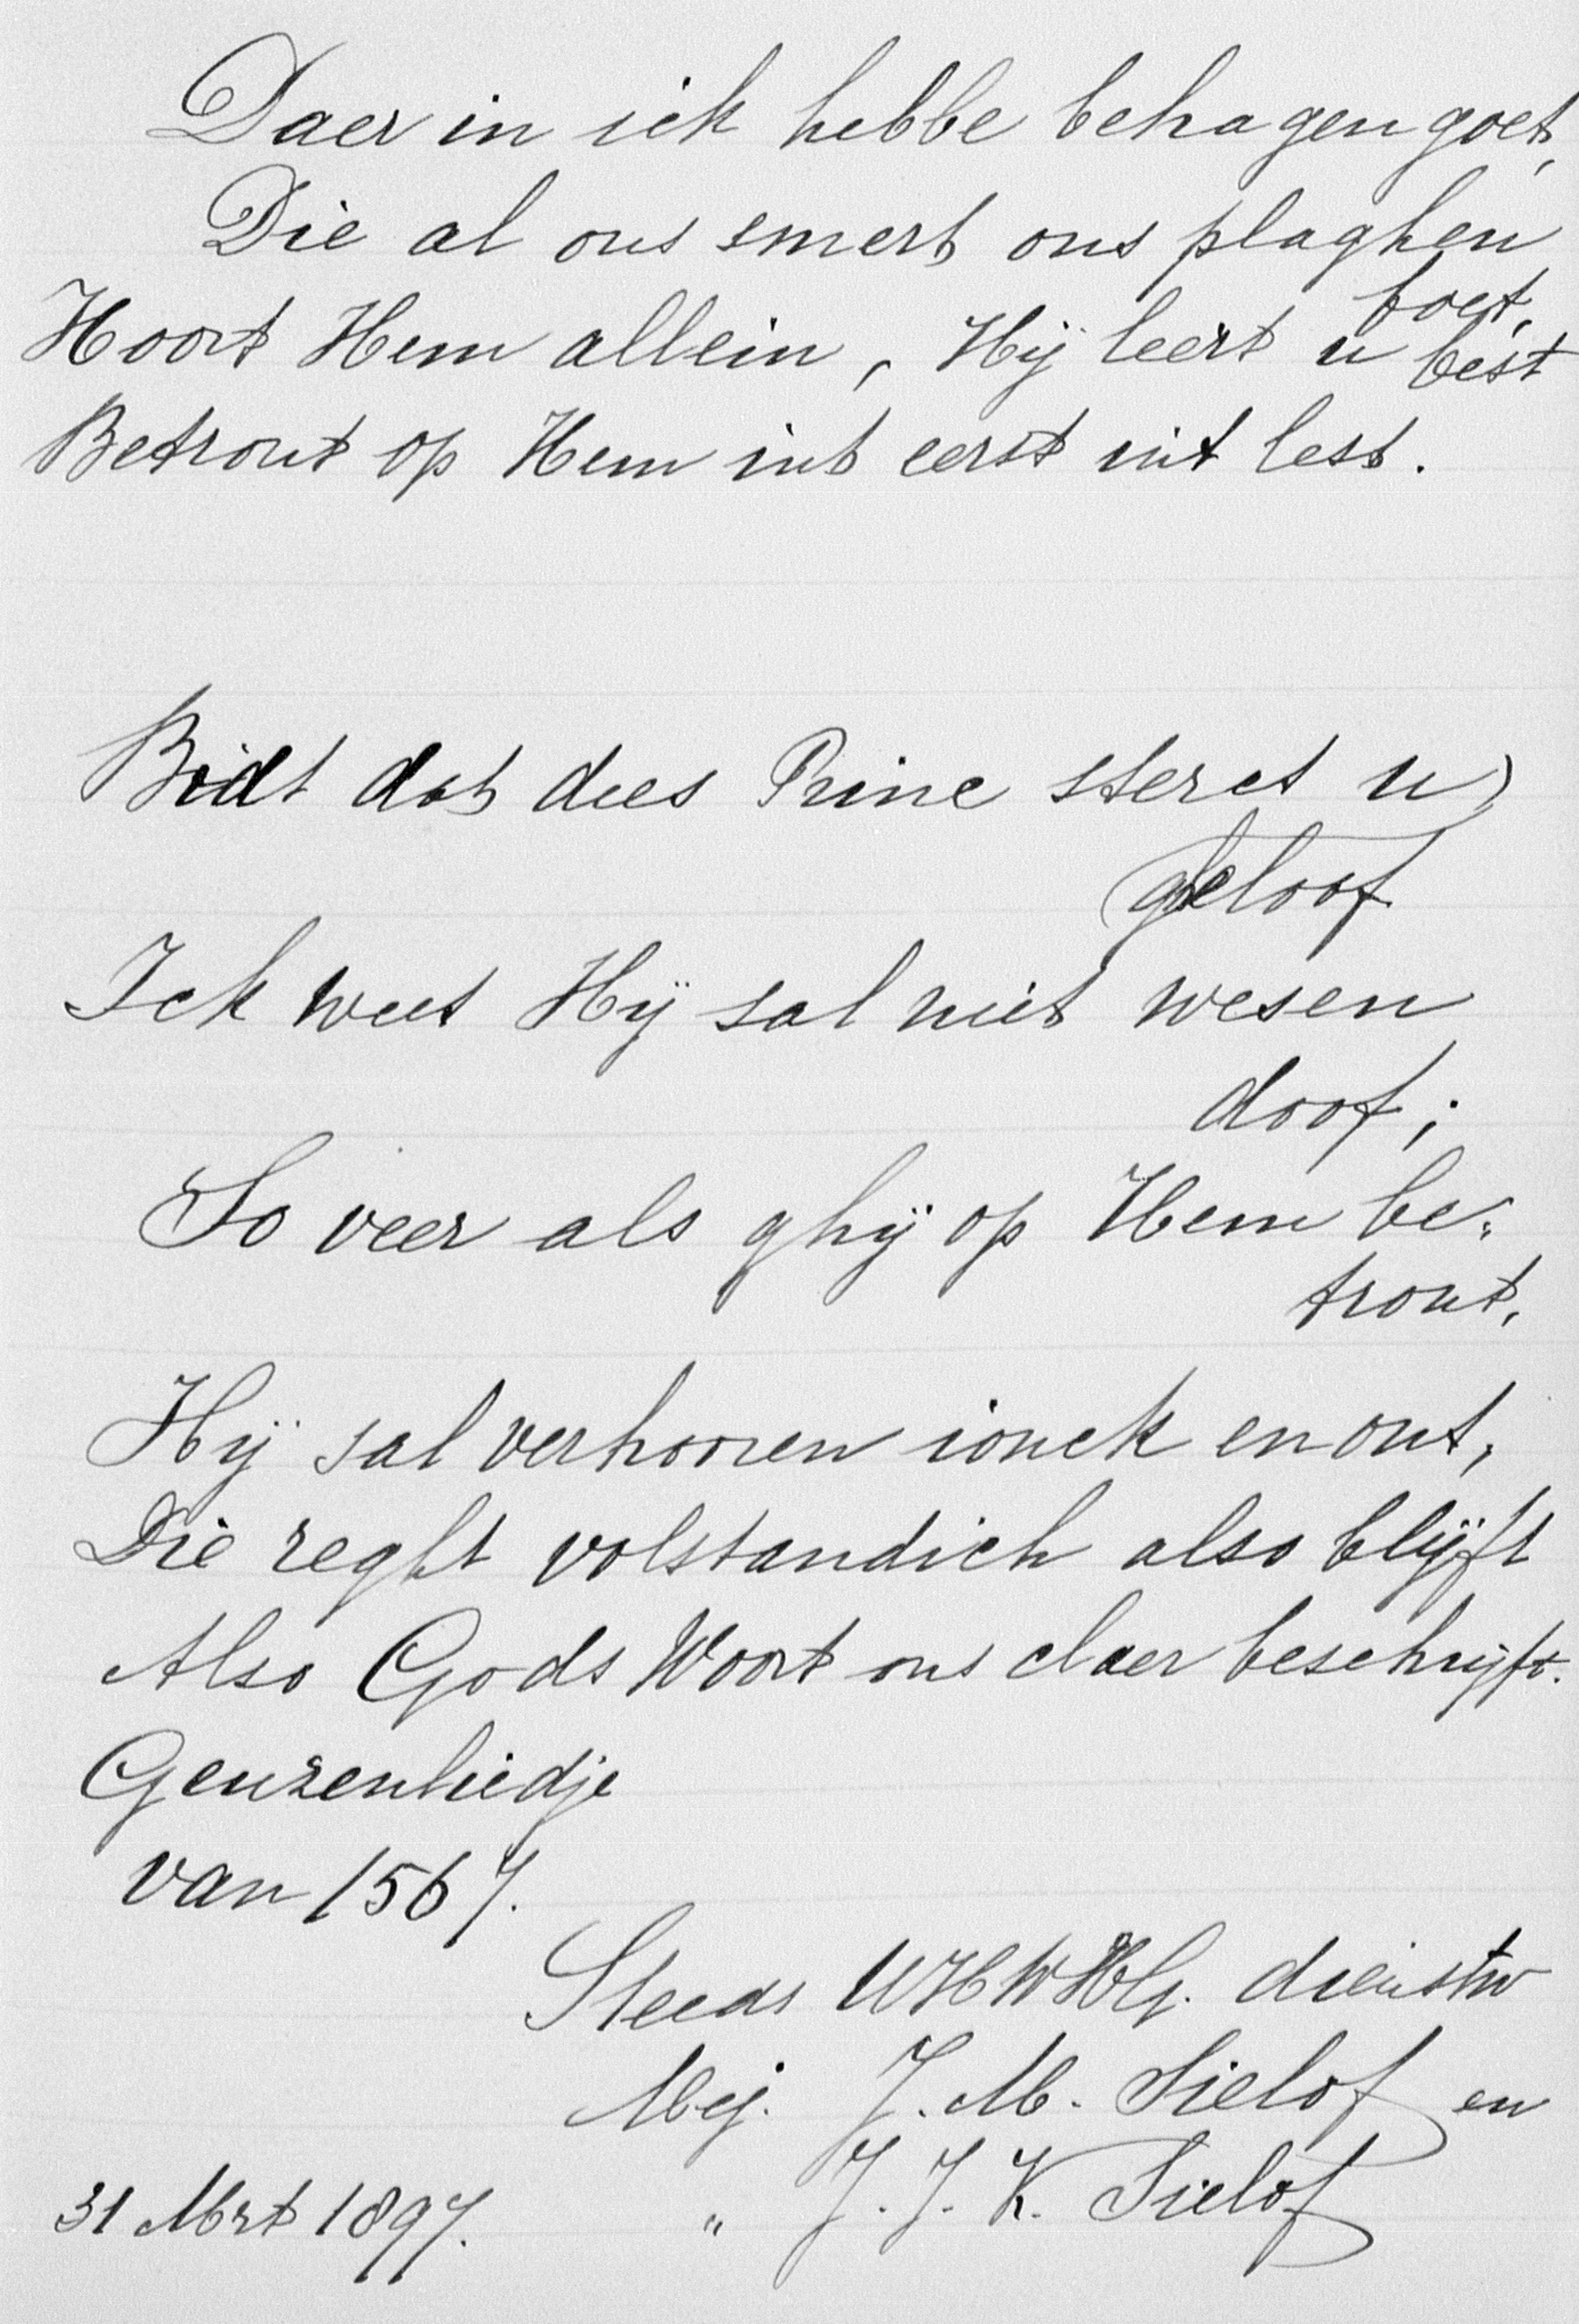 Daer in ick hebbe behagen goet,
Die al ons smert ons plaghen
boet,
Hoort Hem allein, Hij leert u best
Betrout op Hem int eerst int lest.
Bidt dat dees Princ sterct u
geloof
Ick weet Hij sal niet wesen
doof;
So veer als ghij op Hem be-
trout.
Hij sal verhooren ionck en out,
Die reght volstandich also blijft
Also Gods Woort ons claer beschrijft.
Geuzenliedje
van 1567.
Steeds UHWHG. dienstw
Mej. J. M. Sielof en
" J. J. K. Sielof
31 Mrt 1897.